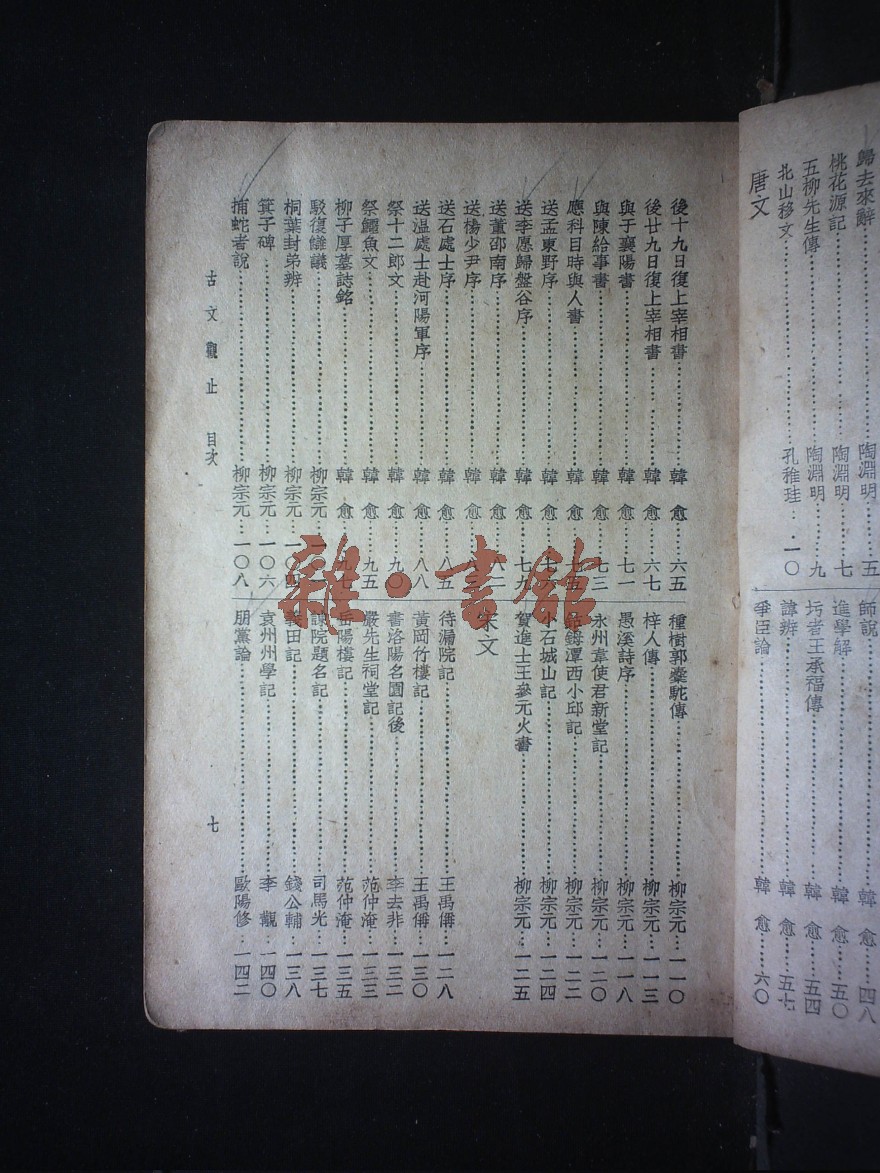 歸去來辭……陶淵明…五
桃花源記……陶淵明…七
五柳先生傳……陶淵明…九
北山移文……孔稚珪…一〇
唐文
師說……韓愈…四八
進學解……韓愈…五〇
圬者王承福傳……韓愈…五四
諱辨……韓愈…五七
爭臣論……韓愈…六〇
後十九日復上宰相書……韓愈…六五
後廿九日復上宰相書……韓愈…六七
與于襄陽書……韓愈…七一
與陳給事書……韓愈…七三
應科目時與人書……韓愈…七五
送孟東野序……韓愈
送李愿歸盤谷序……韓愈…七九
送董邵南序……韓愈…八二
送楊少尹序……韓愈
送石處士序……韓愈…八五
送温處士赴河陽軍序……韓愈…八八
祭十二郎文……韓愈…九〇
祭鱷魚文……韓愈…九五
柳子厚墓誌銘……韓愈…九七
駁復讎議……柳宗元
桐葉封弟辨……柳宗元…一〇四
箕子碑……柳宗元…一〇六
捕蛇者說……柳宗元…一〇八
種樹郭橐駝傳……柳宗元…一一〇
梓人傳……柳宗元…一一三
愚溪詩序……柳宗元…一一八
永州韋使君新堂記……柳宗元…一二〇
鈷鉧潭西小邱記……柳宗元…一二二
小石城山記……柳宗元…一二四
賀進士王參元火書……柳宗元…一二五
宋文
待漏院記……王禹偁…一二八
黃岡竹樓記……王禹偁…一三〇
書洛陽名園記後……李去非…一三二
嚴先生祠堂記……范仲淹…一三三
岳陽樓記……范仲淹…一三五
諫院題名記……司馬光…一三七
義田記……錢公輔…一三八
袁州州學記……李覯…一四〇
朋黨論……歐陽修…一四二
古文觀止 目次
七
雜·書館